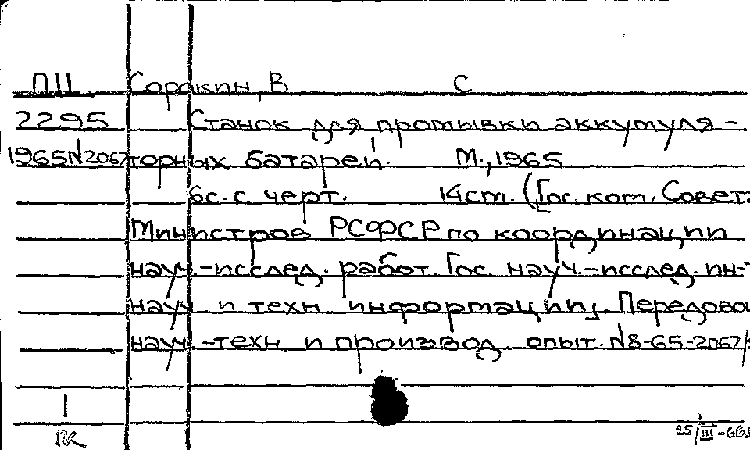 П11 Сорокин, В С
2295 Станок для промывки аккумуля-
1965 N2067 торных батарей. М., 1965
6с. с черт. 14cm. (Гос. ком. Совет
Министров РСФСР по координации
науч.-исслед. работ. Гос. науч.-исслед. ин-т
науч. и техн информации. Передово
науч.-техн и производ. опыт. N8-65-2067/
1
25/III-66